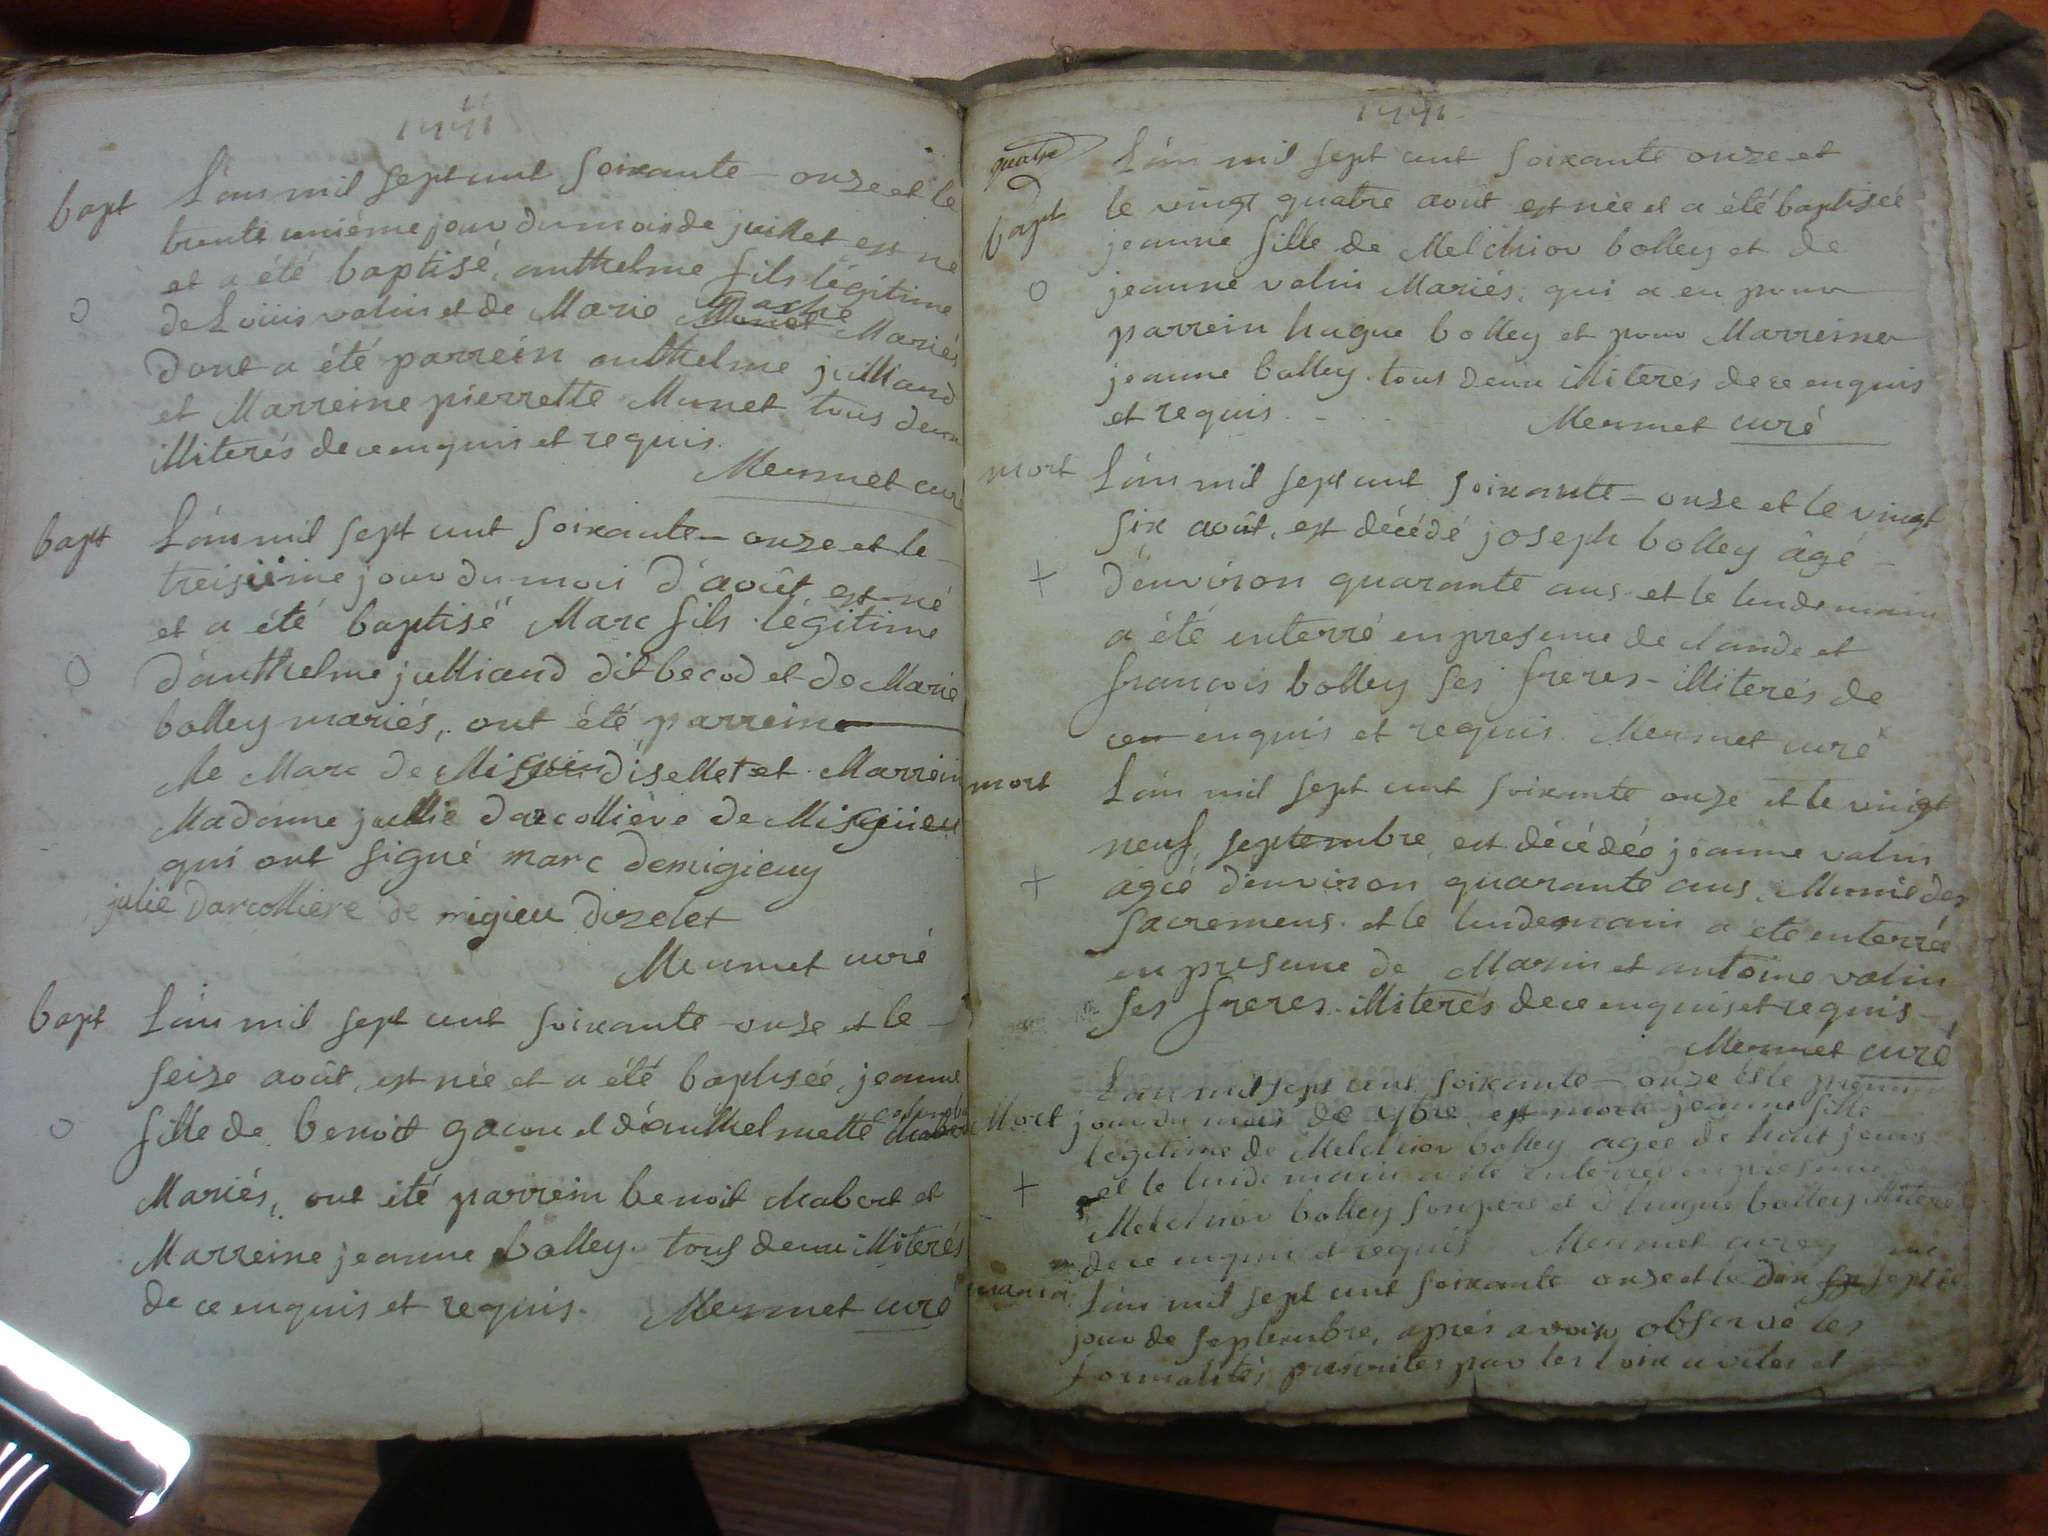 1771
bapt L'an mil sept cent soixante - onze et le
trente unième jour du mois de juillet est né
et a été baptisé, anthelme fils légitime
de Loüis valin et de Marie Mariés
dont a été parrein anthelme julliand
et Marreine pierrette Munet tous deux
illiterés de ce enquis et requis.
Mermet curé
bapt L'an mil sept cent soixante - onze et le
treisième jour du mois d'août, est né
et a été baptisé Marc fils légitime
O d'anthelme julliand dit becod et de Marie
bolley mariés, ont été parrein
Me Marc de Misgieu disellet et Marrein
Madame jullie darcollière de Misgieu
qui ont signé marc demigieuy
julie Darcolliere de migieu dizelet
Mermet curé
bapt L'an mil sept cent soixante - onze et le
seize août, est née et a été baptisée, jeanne
O fille de benoit gacon et d'anthelmette
Mariés, ont été parrein benoit Mabert et
Marreine jeanne bolley. tous deux illiterés
de ce enquis et requis. Mermet curé
1771
quatre L'an mil sept cent soixante onze et
bapt le vingt quatre août est née et a été baptisée
jeanne fille de Melchior bolley et de
O jeanne valin Mariés, qui a eu pour
parrein hugue bolley et pour Marreine
jeanne bolley. tous deux illiterés de ce enquis
et requis. Mermet curé
mort L'an mil sept cent soixante - onze et le vingt
six août, est décédé joseph bolley âgé
+ d'environ quarante ans. et le lendemain
a été enterré en presence de claude et
françois bolley ses freres - illiterés de
ce enquis et requis. Mermet curé
mort L'an mil sept cent soixante onze et le vingt
neuf septembre, est décédée jeanne valin
+ agée d'environ quarante ans, Munie des
sacremens. et le lendemain a été enterrée
en presence de Marin et antoine valin
ses freres. illiterés de ce enquis et requis
Mermet curé
L'an mil sept cent soixante - onze et le premier
Mort jour du mois de 7bre est morte jeanne fille
legitime de Melchior bolley agée de huit jours
+ et le lendemain a été enterrée en presence de
Melchior bolley son pere et d'hugue bolley illiterés
de ce enquis et requis Mermet curé
L'an mil sept cent soixante onze et le dix septie
jour de septembre, après avoir observé les
formalités prescrites par les loix civiles et